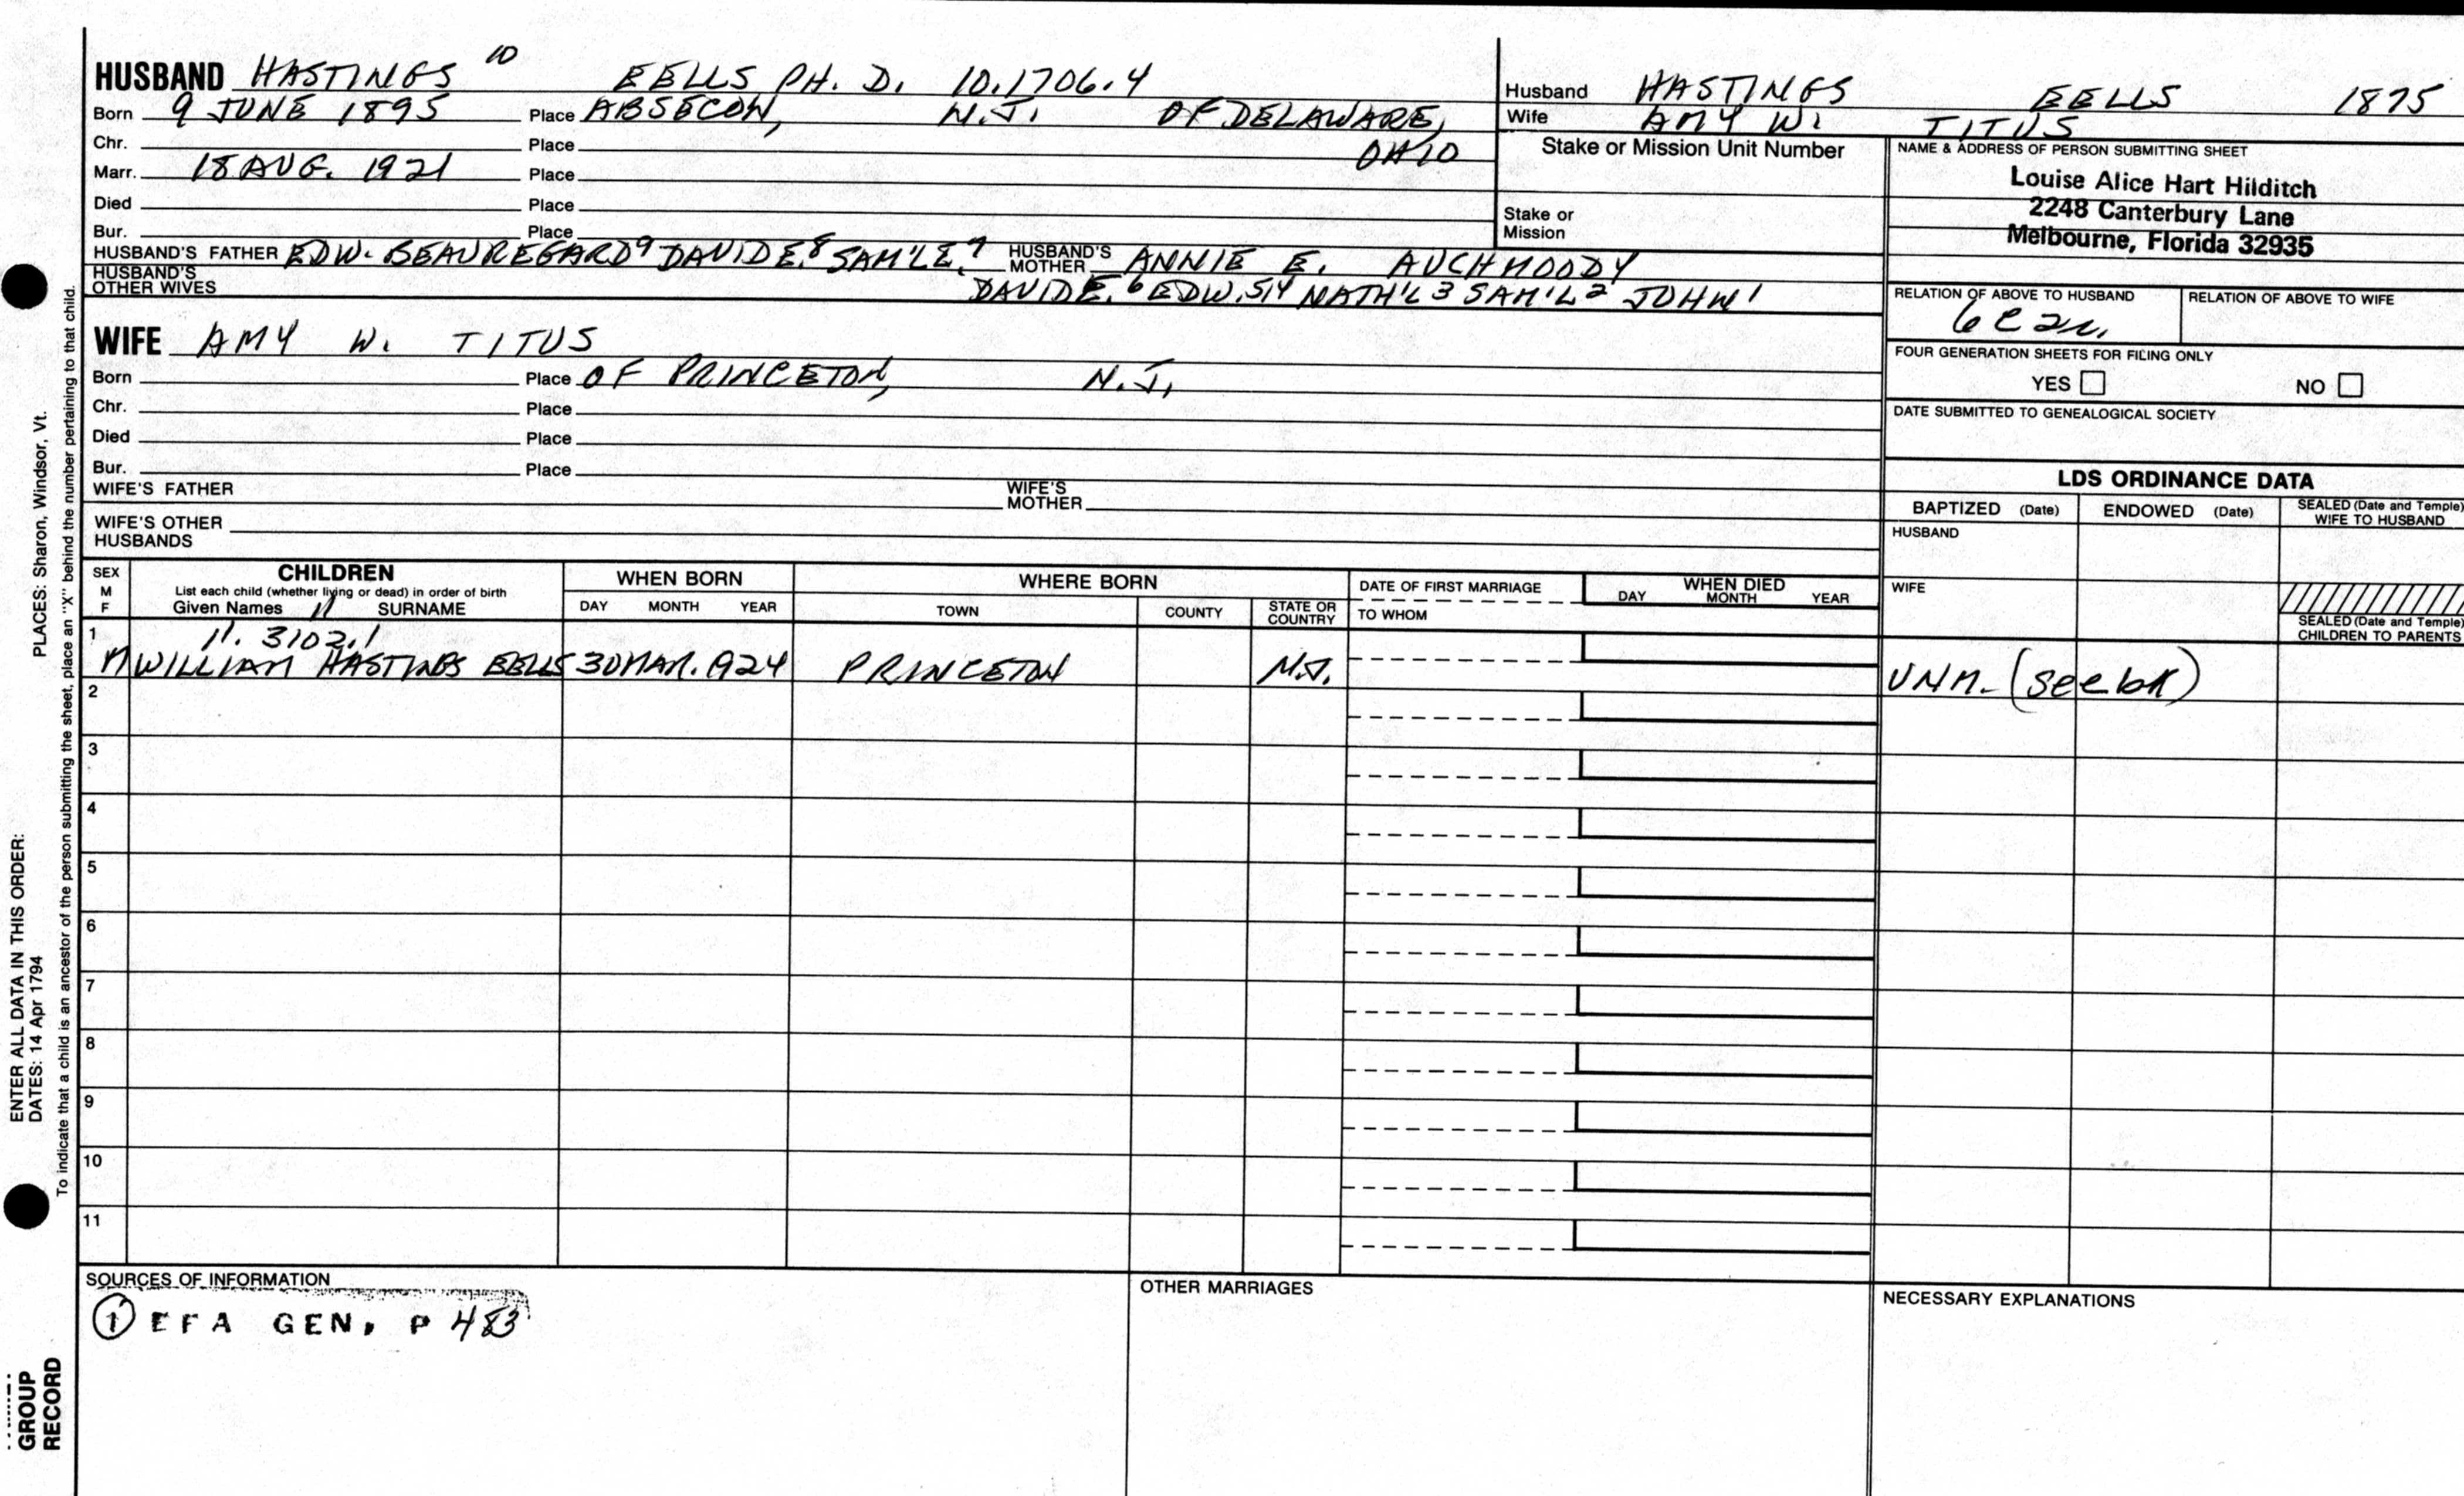 HUSBAND HASTINGS 10 EELLS PH. D. 10.1706.4
Born 9 JUNE 1895 Place ABSECON, N.J. OF DELAWARE,
Chr. Place OHIO
Marr. 18 AUG. 1921 Place
Died Place
Bur. Place
HUSBAND'S FATHER EDW. BEAUREGARD 9 DAVID E. 8 SAM'L E. 7 HUSBAND'S MOTHER ANNIE E. AUCHMOODY
HUSBAND'S OTHER WIVES DAVID E. 6 EDW. 5,4 NATH'L 3 SAM'L 2 JOHN 1
Husband HASTINGS EELLS 1875
Wife AMY W. TITUS
Stake or Mission Unit Number
Stake or Mission
NAME & ADDRESS OF PERSON SUBMITTING SHEET
Louise Alice Hart Hilditch
2248 Canterbury Lane
Melbourne, Florida 32935
RELATION OF ABOVE TO HUSBAND RELATION OF ABOVE TO WIFE
6C
FOUR GENERATION SHEETS FOR FILING ONLY
YES NO
DATE SUBMITTED TO GENEALOGICAL SOCIETY
WIFE AMY W. TITUS
Born Place OF PRINCETON, N.J.
Chr. Place
Died Place
Bur. Place
WIFE'S FATHER WIFE'S MOTHER
WIFE'S OTHER HUSBANDS
LDS ORDINANCE DATA
BAPTIZED (Date) ENDOWED (Date) SEALED (Date and Temple) WIFE TO HUSBAND
HUSBAND
WIFE
SEALED (Date and Temple) CHILDREN TO PARENTS
SEX M F CHILDREN WHEN BORN WHERE BORN DATE OF FIRST MARRIAGE WHEN DIED
List each child (whether living or dead) in order of birth
Given Names 11 SURNAME DAY MONTH YEAR TOWN COUNTY STATE OR COUNTRY TO WHOM DAY MONTH YEAR
1 11.3102.1
M WILLIAM HASTINGS EELLS 30 MAR. 1924 PRINCETON N.J. UNM. (see bk)
2
3
4
5
6
7
8
9
10
11
SOURCES OF INFORMATION OTHER MARRIAGES NECESSARY EXPLANATIONS
1 EFA GEN. P 483
PLACES: Sharon, Windsor, Vt.
ENTER ALL DATA IN THIS ORDER:
DATES: 14 Apr 1794
To indicate that a child is an ancestor of the person submitting the sheet, place an "X" behind the number pertaining to that child.
GROUP
RECORD